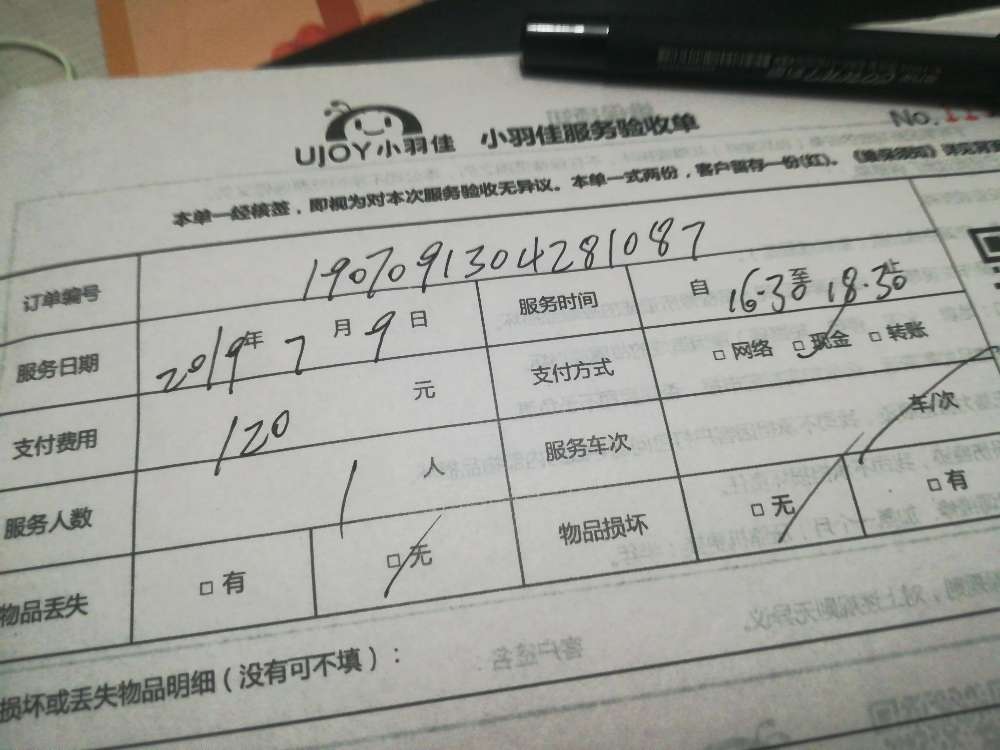 UJOY小羽佳 小羽佳服务验收单 No.
本单一经核签，即视为对本次服务验收无异议。本单一式两份，客户留存一份(红)。
订单编号 190709130428 1087
服务日期 2019年 7月 9日 服务时间 自 16:30 至 18:30 止
支付费用 120 元 支付方式 □网络 □现金 □转账
服务人数 1 人 服务车次 车/次
物品丢失 □有 □无 物品损坏 □无 □有
损坏或丢失物品明细（没有可不填）：